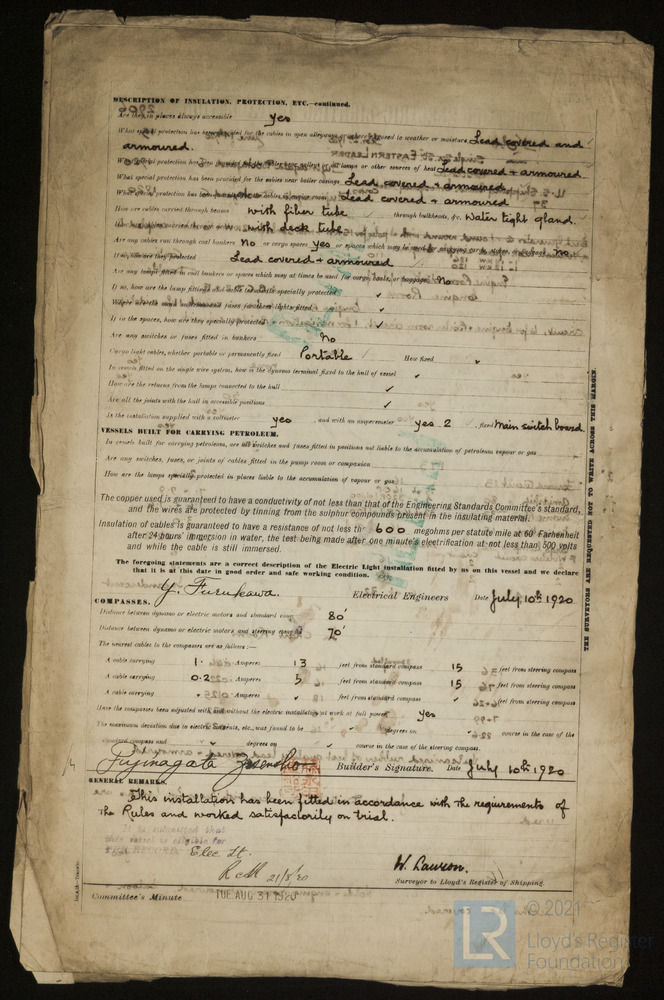 DESCRIPTION OF INSULATION, PROTECTION, ETC.—continued.
Are they in places always accessible yes
What special protection has been provided for the cables in open alleyways or where exposed to weather or moisture Lead covered and
armoured.
What special protection has been provided for the cables near galleys or oil lamps or other sources of heat Lead covered + armoured
What special protection has been provided for the cables near boiler casings Lead covered + armoured
What special protection has been provided for the cables in engine room Lead covered + armoured
How are cables carried through beams with fiber tube through bulkheads, &c. Water tight gland.
How are cables carried through decks with deck tube
Are any cables run through coal bunkers No or cargo spaces yes or spaces which may be used for carrying cargo, stores, or baggage No
If so, how are they protected Lead covered + armoured
Are any lamps fitted in coal bunkers or spaces which may at times be used for cargo, coals, or baggage No
If so, how are the lamp fittings and cable terminals specially protected ✓
Where are the main switches and fuses for these lights fitted ✓
If in the spaces, how are they specially protected ✓
Are any switches or fuses fitted in bunkers No
Cargo light cables, whether portable or permanently fixed Portable How fixed ✓
In vessels fitted on the single wire system, how is the dynamo terminal fixed to the hull of vessel ✓
How are the returns from the lamps connected to the hull ✓
Are all the joints with the hull in accessible positions ✓
Is the installation supplied with a voltmeter yes , and with an amperemeter yes 2 , fixed Main switch board.
VESSELS BUILT FOR CARRYING PETROLEUM.
In vessels built for carrying petroleum, are all switches and fuses fitted in positions not liable to the accumulation of petroleum vapour or gas
Are any switches, fuses, or joints of cables fitted in the pump room or companion
How are the lamps specially protected in places liable to the accumulation of vapour or gas
The copper used is guaranteed to have a conductivity of not less than that of the Engineering Standards Committee's standard,
and the wires are protected by tinning from the sulphur compounds present in the insulating material.
Insulation of cables is guaranteed to have a resistance of not less than 600 megohms per statute mile at 60° Farhenheit
after 24 hours' immersion in water, the test being made after one minute's electrification at not less than 500 volts
and while the cable is still immersed.
The foregoing statements are a correct description of the Electric Light installation fitted by us on this vessel and we declare
that it is at this date in good order and safe working condition.
Y. Furukawa Electrical Engineers Date July 10th 1920
COMPASSES.
Distance between dynamo or electric motors and standard compass 80'
Distance between dynamo or electric motors and steering compass 70'
The nearest cables to the compasses are as follows:—
A cable carrying 1. Amperes 13 feet from standard compass 15 feet from steering compass
A cable carrying 0.2 Amperes 5 feet from standard compass 15 feet from steering compass
A cable carrying Amperes feet from standard compass feet from steering compass
Have the compasses been adjusted with and without the electric installation at work at full power yes
The maximum deviation due to electric currents, etc., was found to be ✓ degrees on ✓ course in the case of the
standard compass and ✓ degrees on ✓ course in the case of the steering compass.
Fujinagata Zosensho Builder's Signature. Date July 10th 1920
GENERAL REMARKS.
This installation has been fitted in accordance with the requirements of
The Rules and worked satisfactorily on trial.
It is submitted that
this vessel is eligible for
THE RECORD. Elec. Lt.
21/8/20
W. Lawson.
Surveyor to Lloyd's Register of Shipping.
Committee's Minute TUE. AUG 31 1920
THE SURVEYORS ARE REQUESTED NOT TO WRITE ACROSS THIS MARGIN.
LR
© 2021
Lloyd's Register
Foundation